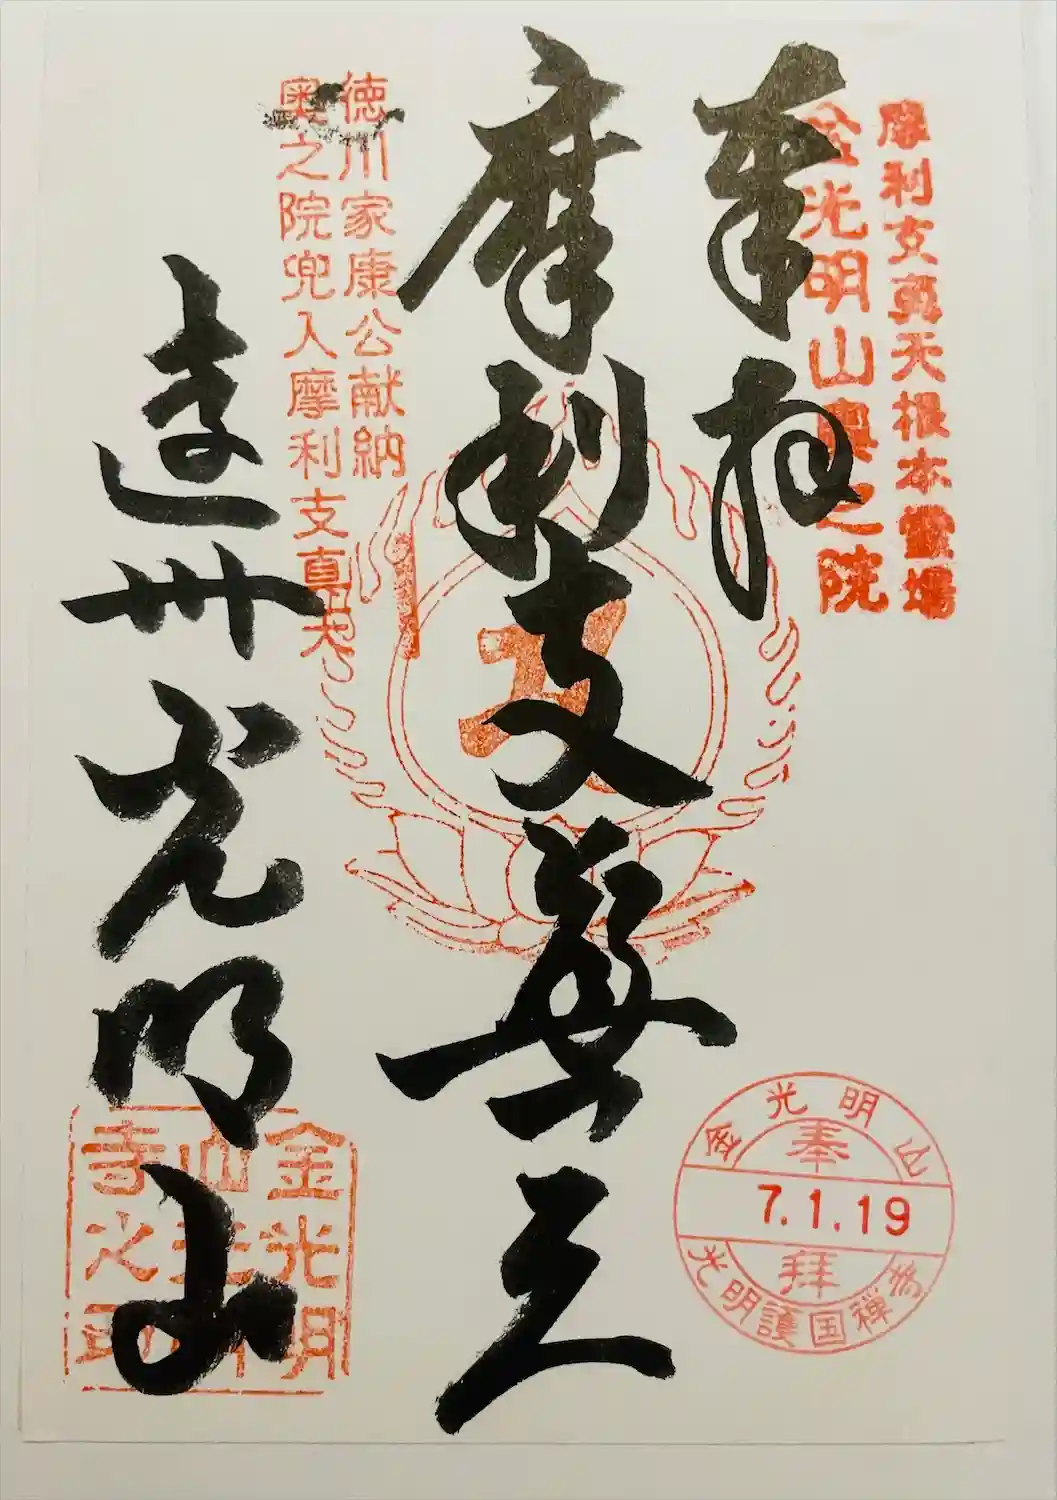 摩利支真天根本靈場
金光明山奥之院
奉拝
摩利支真天
徳川家康公献納
奥之院兜入摩利支真天
遠州光明山
金光明
山光明
寺之印
金光明山
奉
7.1.19
拝
光明護国禪寺